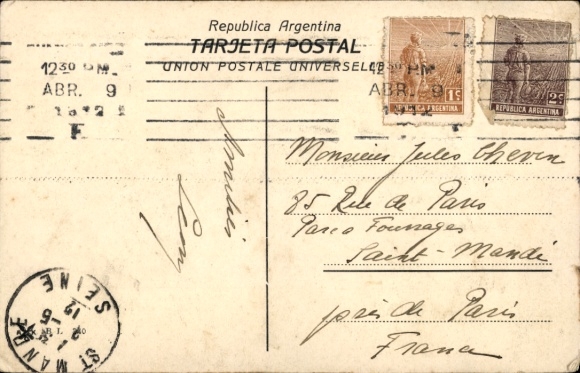 Republica Argentina
TARJETA POSTAL
UNION POSTALE UNIVERSELLE
12 30 PM.
ABR. 9
1912
F
12 30 PM.
ABR. 9
1912
1c
REPUBLICA ARGENTINA
2c
REPUBLICA ARGENTINA
Monsieur Jules Chevin
85 Rue de Paris
Parc Fourrages
Saint-Mandé
près de Paris
France
ST MANDÉ
5-
12
SEINE